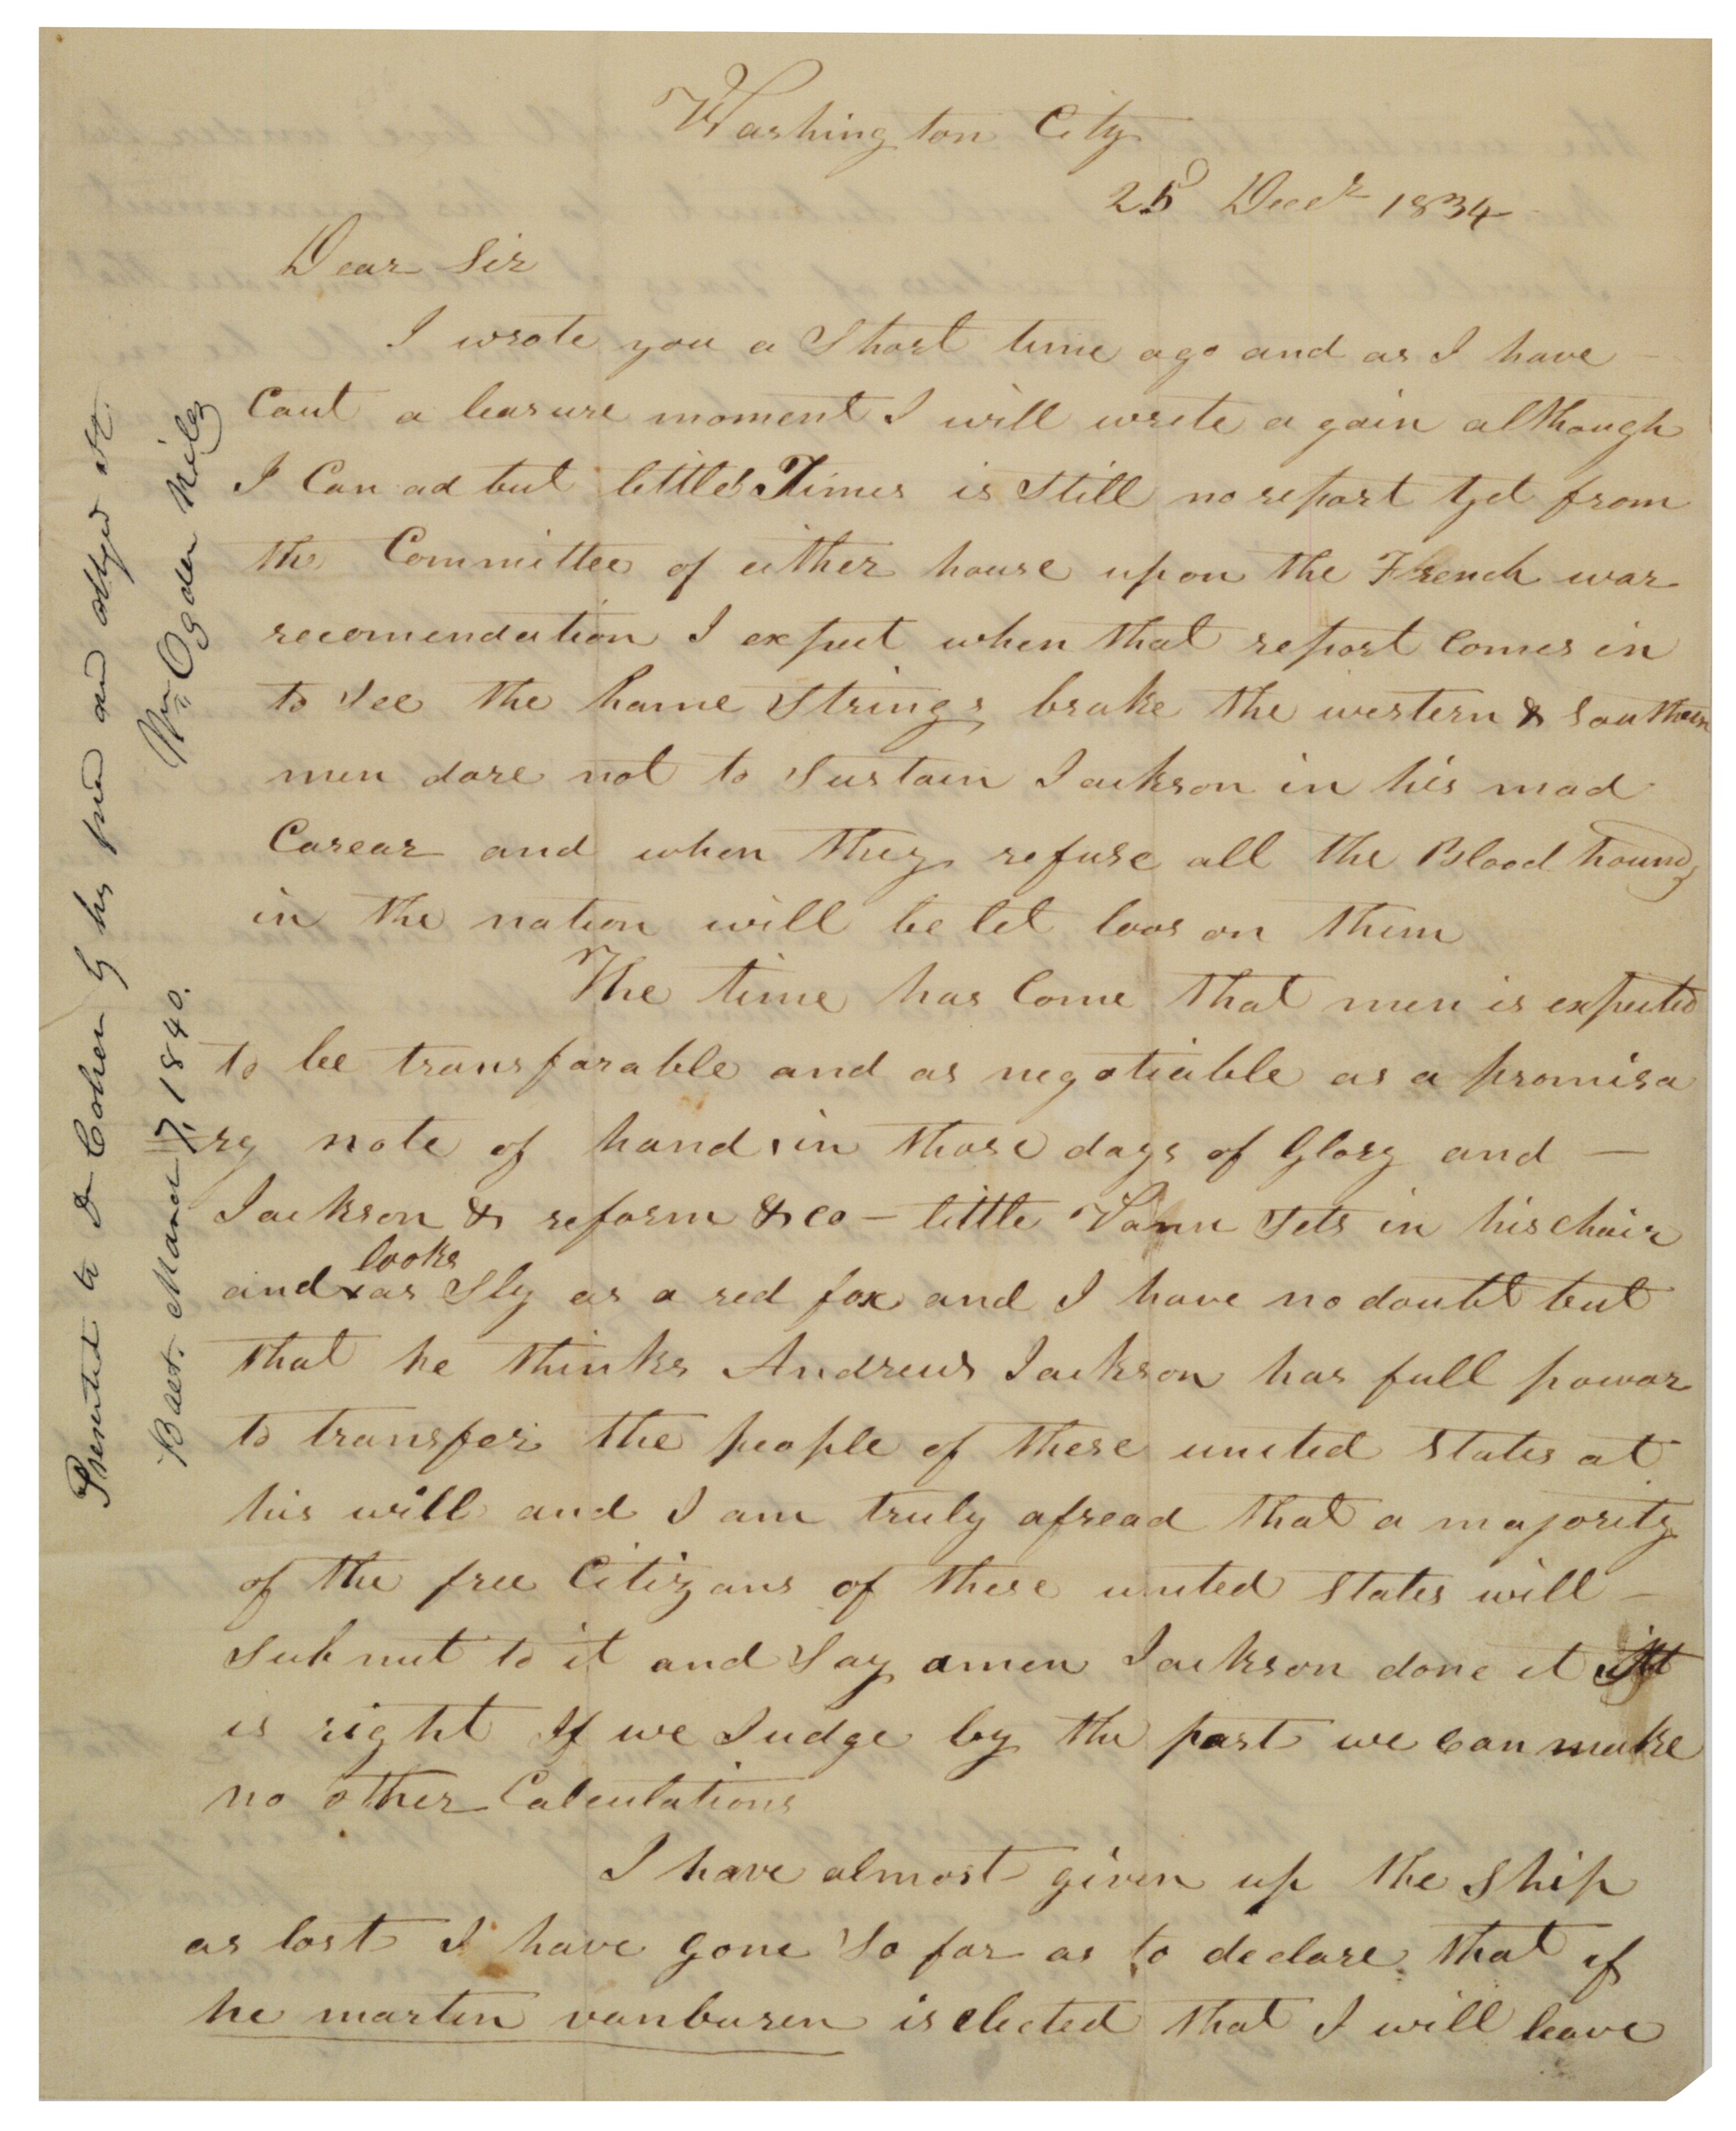 Washington City
25 Decr 1834
Dear Sir
I wrote you a Short time ago and as I have –
Caut a leasure moment I will write a gain although
I Can ad but little Times is Still no report Yet from
the Committee of either house upon the French war
recomendation I expect when that report Comes in
to See the hame Strings brake the western & Southern
men dare not to Sustain Jackson in his mad
Carear and when they refuse all the Blood hounds
in the nation will be let loos on them
The time has Come that men is expected
to be transfarable and as negotiable as a promisa
ry note of hand, in those days of Glory and –
Jackson & reform & co – little Vann Sets in his chair
looks
and as Sly as a red fox and I have no doubt but
that he thinks Andrew Jackson has full powar
to transfer the people of these united States at
his will and I am truly afread that a majority
of the free Citizans of these united States will –
Submit to it and Say amen Jackson done it it
is right If we Judge by the past we can make
no other Calculations
I have almost given up the Ship
as lost I have gone So far as to declare that if
he martin vanburen is elected that I will leave
Presented to Dr Cohen by his friend and obliged st.
Wm Ogden Niles
Balt. March 7, 1840.